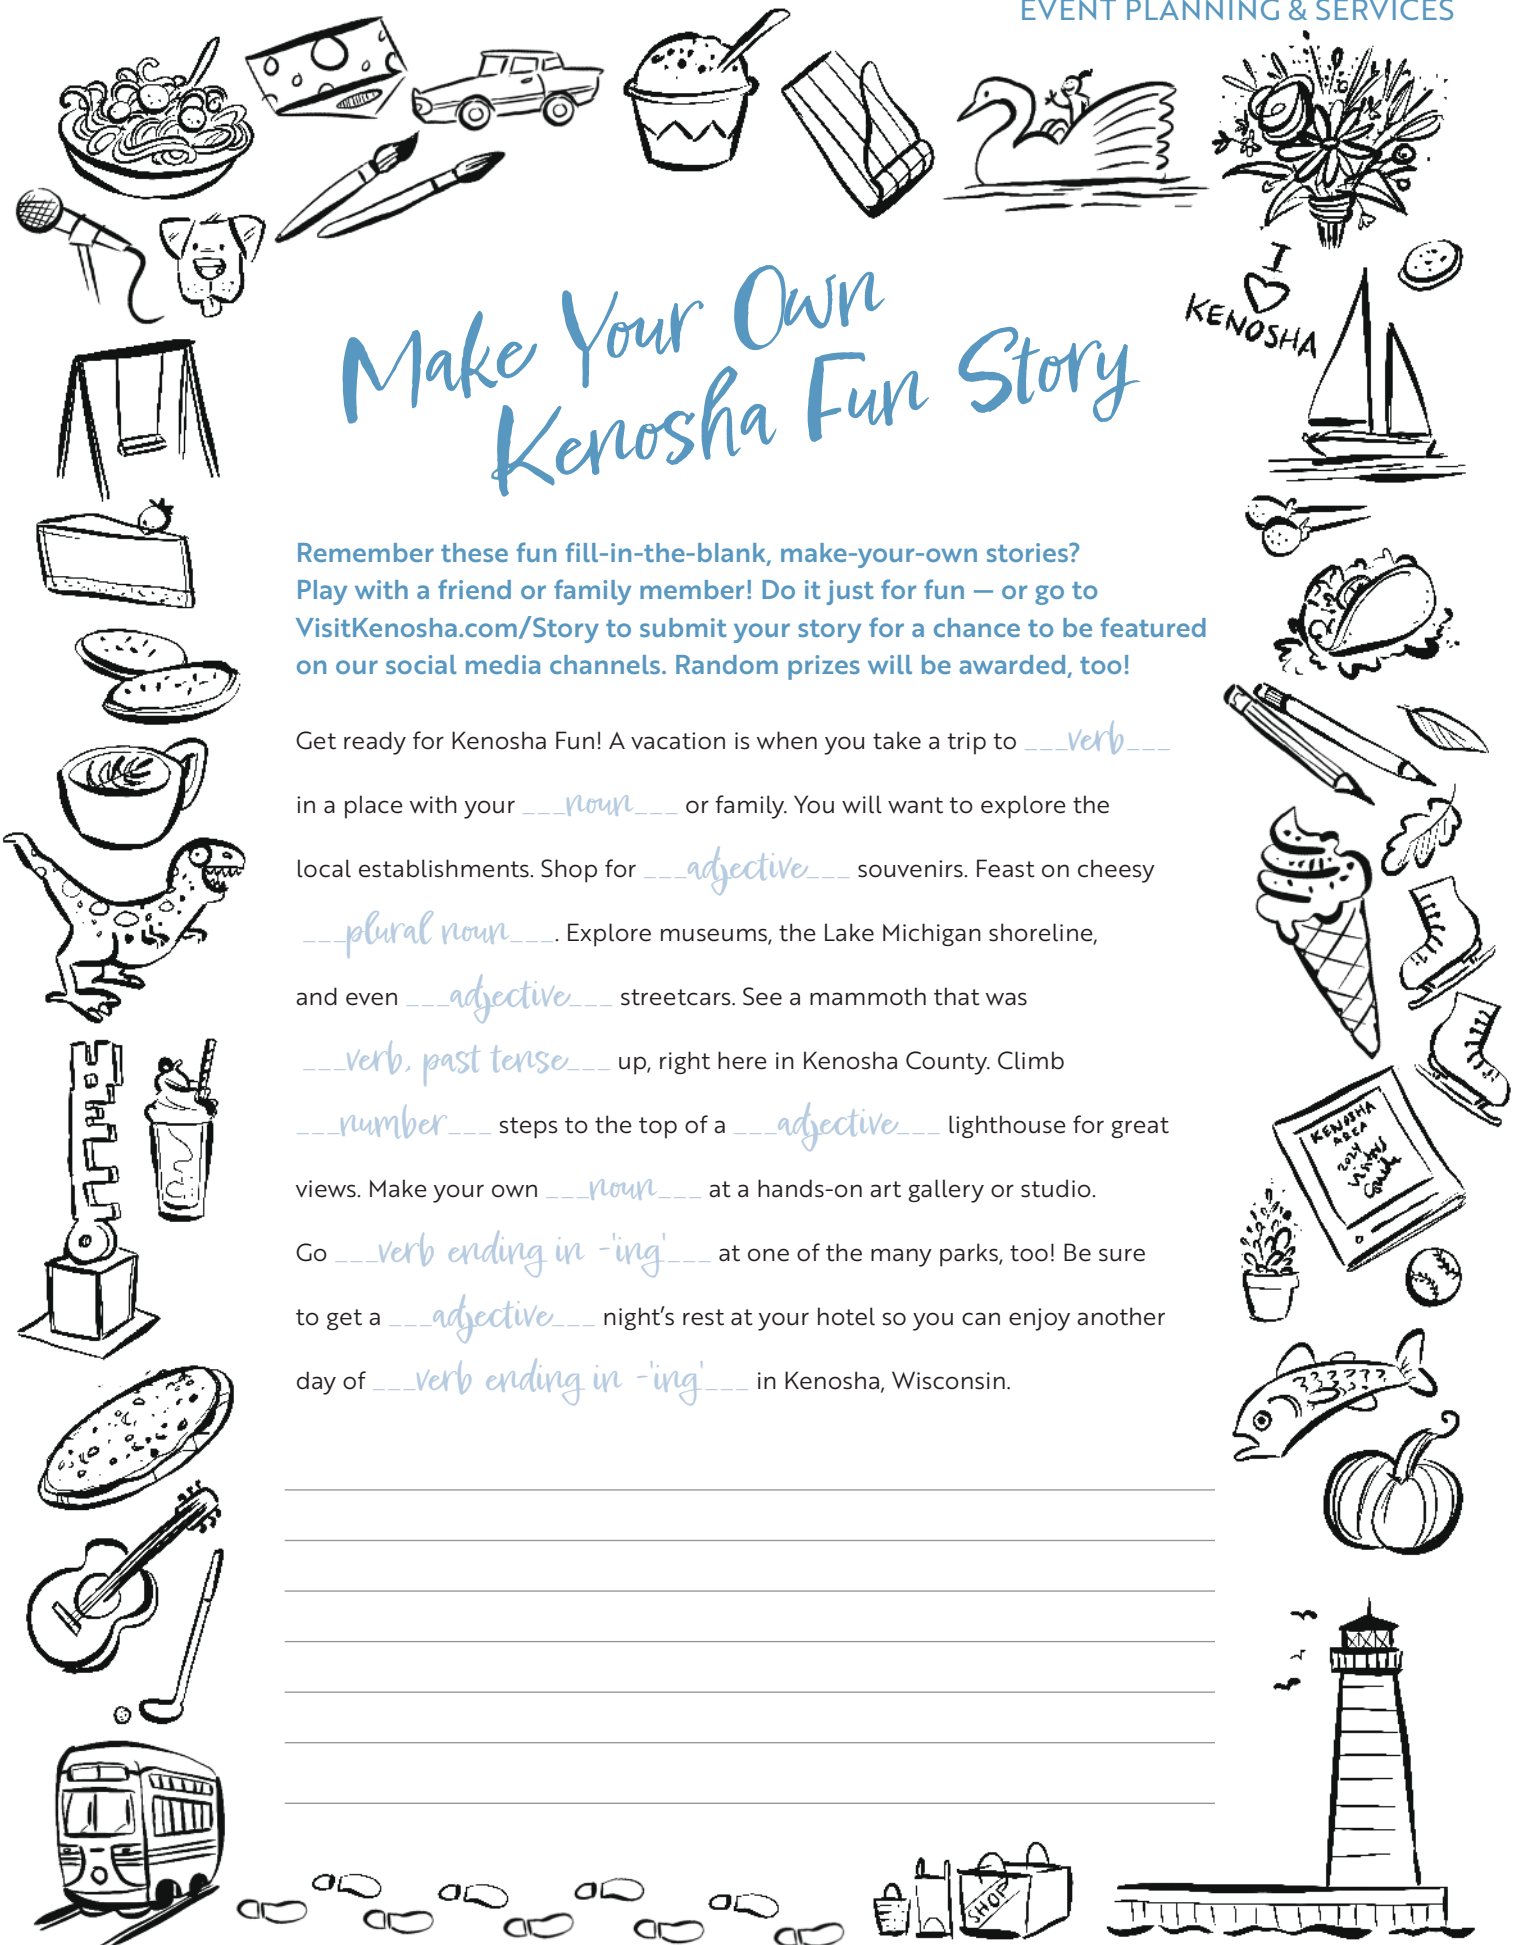 EVENT PLANNING & SERVICES
I
KENOSHA
Make Your Own
Kenosha Fun Story
Remember these fun fill-in-the-blank, make-your-own stories?
Play with a friend or family member! Do it just for fun — or go to
VisitKenosha.com/Story to submit your story for a chance to be featured
on our social media channels. Random prizes will be awarded, too!
Get ready for Kenosha Fun! A vacation is when you take a trip to ___verb___
in a place with your ___noun___ or family. You will want to explore the
local establishments. Shop for ___adjective___ souvenirs. Feast on cheesy
___plural noun___. Explore museums, the Lake Michigan shoreline,
and even ___adjective___ streetcars. See a mammoth that was
___verb, past tense___ up, right here in Kenosha County. Climb
___number___ steps to the top of a ___adjective___ lighthouse for great
views. Make your own ___noun___ at a hands-on art gallery or studio.
Go ___verb ending in -'ing'___ at one of the many parks, too! Be sure
to get a ___adjective___ night’s rest at your hotel so you can enjoy another
day of ___verb ending in -'ing'___ in Kenosha, Wisconsin.
KENOSHA
AREA
2024
Visitors
Guide
HELLO
SHOP